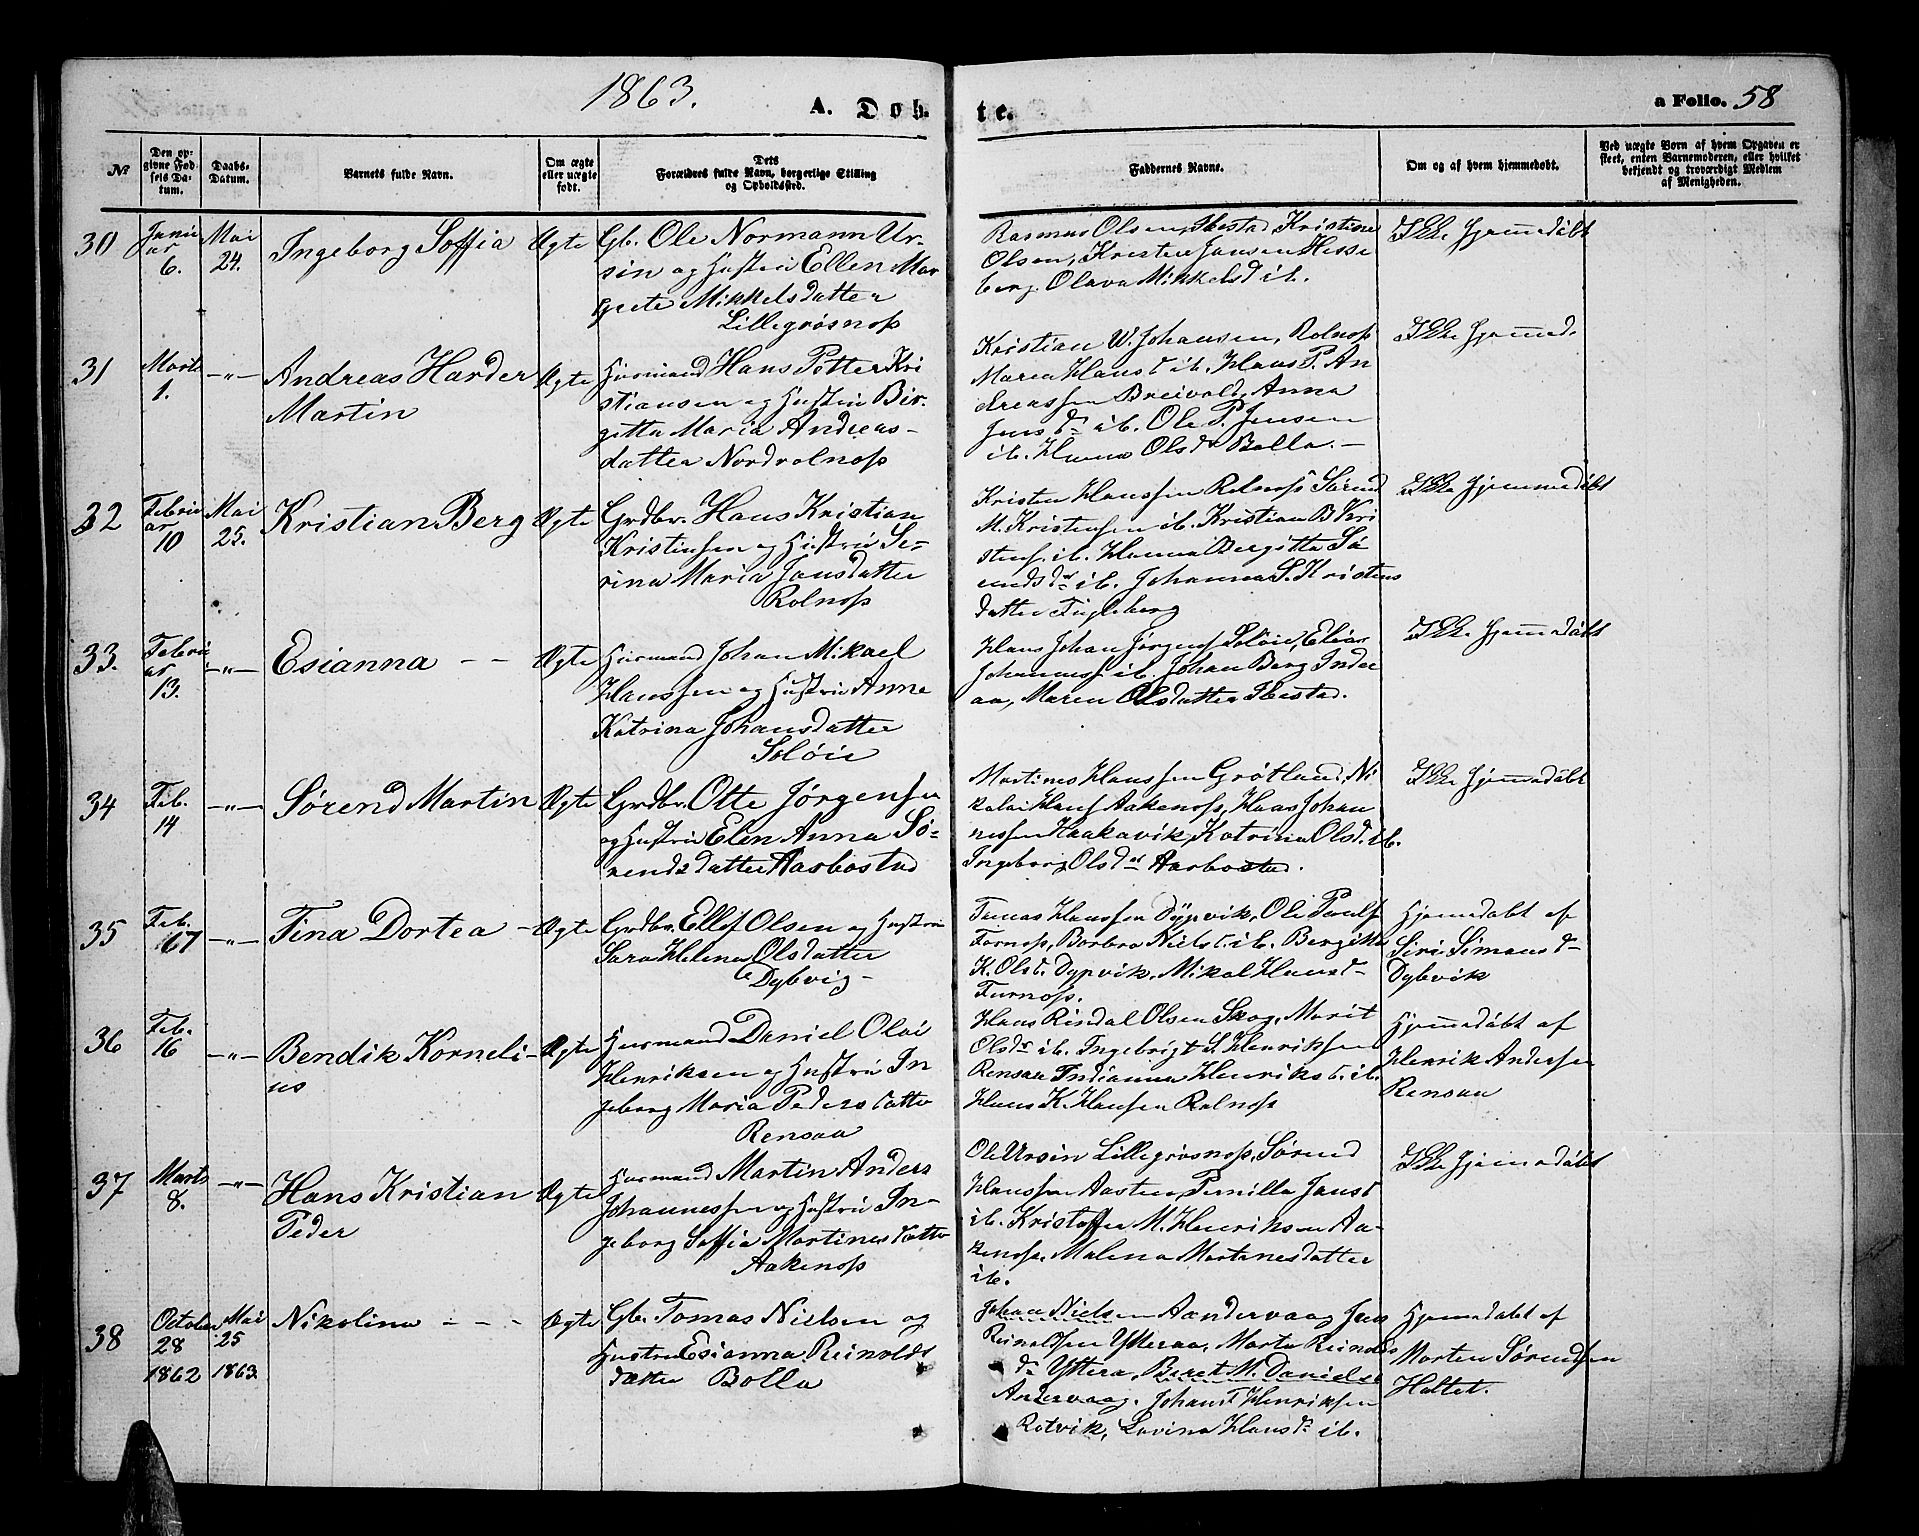 1863.
A. Døb-
te.
a Folio. 58
№
Den op-
givne Fød-
sels Da-
tum.
Daabs-
Datum.
Barnets fulde Navn.
Om ægte
eller uægte
født.
Dets
Forældres fulde Navn, borgerlige Stilling
og Opholdssted.
Faddernes Navne.
Om og af hvem hjemmedøbt.
Ved uægte Børn af hvem Opgaven er
skeet, enten Barnemoderen, eller hvilket
bekjendt og troværdigt Medlem
af Menigheden.
30
Janu
ar
6.
Mai
24.
Ingeborg Soffia
Ægte
Gb. Ole Normann Ur-
sin og Hustru Ellen Mar
grete Mikkelsdatter
Lillegrøsnoss
Rasmus Olsen, Ibestad Kristine
Olsen, Kristen Jansen Hesse
berg. Olava Mikkelsd ib.
Ikke hjemmedøbt
31
Marts
1.
-"-
Andreas Harder
Martin
Ægte
Husmand Hans Petter Kri
stiansen og Hustru Bir-
gitta Maria Andreas-
datter Nordrolnoss
Kristian W. Johansen, Rolnoss
Maren Hansd ib. Hans P. An
dreassen Breivold, Anna
Jens dr ib. Ole P. Jensen
ib. Hanna Olsdr Bolla. -
Ikke hjemmed.
32
Febru
ar
10
Mai
25.
Kristian Berg
Ægte
Grdbr. Hans Kristian
Kristensen og Hustru Se-
rina Maria Jansdatter
Rolnoss
Kristen Hanssen Rolnoss Sørend
M. Kristensen ib. Kristian B Kri
stens. ib. Hanna Bergitta Sø
rendsdr ib. Johanna S. Kristens
datter Fugleberg
Ikke hjemmedøbt
33.
Febru
ar
13.
-"-
Esianna - -
Ægte
Husmand Johan Mikael
Hanssen og Hustru Anne
Katrina Johansdatter
Soløie
Hans Johan Jørgens. Soløie, Elias
Johanness ib. Johan Berg Indre
aa, Maren Olsdatter Ibestad.
Ikke hjemmedøbt
34
Feb.
14
-"-
Sørend Martin
Ægte
Grdbr. Otte Jørgensen
og Hustru Elen Anna Sø-
rendsdatter Aarbostad
Martines Hanssen Grøtland, Ni
kolai Hans. Aakenoss, Hans Johan
nessen Kaakavik, Katrina Olsd. ib.
Ingeborg Olsdr Aarbostad.
Ikke hjemmedøbt
35
Feb.
-"-
Tina Dortea -
Ægte
Grdbr. Ellef Olsen og Hustru
Sara Helena Olsdatter
Dybvig -
Tomas Hanssen Dypvik, Ole Pauls.
Fornoss, Borbra Nielsd. ib. Bergitta
K. Olsd. Dypvik, Mikal Hansd-
Furnoss.
Hjemmedøbt af
Siri Simonsd-
Dybvik
36
Feb.
16
-"-
Bendik Korneli-
us
Ægte
Husmand Daniel Olai
Henriksen og Hustru In
geborg Maria Pedersdatter
Rensaa
Hans Rindal Olsen Skog, Marit
Olsdr ib. Ingebrigt S. Henriksen
Rensaa Indianna Henriksd. ib.
Hans K. Hansen Rolnoss
Hjemmedøbt af
Henrik Andersen
Rensaa
37
Marts
8.
-"-
Hans Kristian
Peder
Ægte
Husmand Martin Anders
Johannessen og Hustru In-
geborg Soffia Martinesdatter
Aakenoss
Ole Ursin Lillegrøsnoss, Sørend
Hanssen Aasten, Pernilla Jansd
ib. Kristoffer M. Henriksen Aa-
kenoss. Malena Martinesdatter
ib.
Ikke hjemmedøbt
38
October
28
1862
Mai
25
1863.
Nikolina - - -
Ægte
Gb. Tomas Nielsen og
Hustru Esianna Reinolds
datter Bolla
Johan Nielsen Aandervaag Jens
Reinoldsen Ytteraa, Marta Reinolds
dr Yttera, Beret M. Daniels.
Andervaag. Johan T Henriksen
Rotvik, Lovina Hansdr ib.
Hjemmedøbt af
Morten Sørendsen
Haltet.